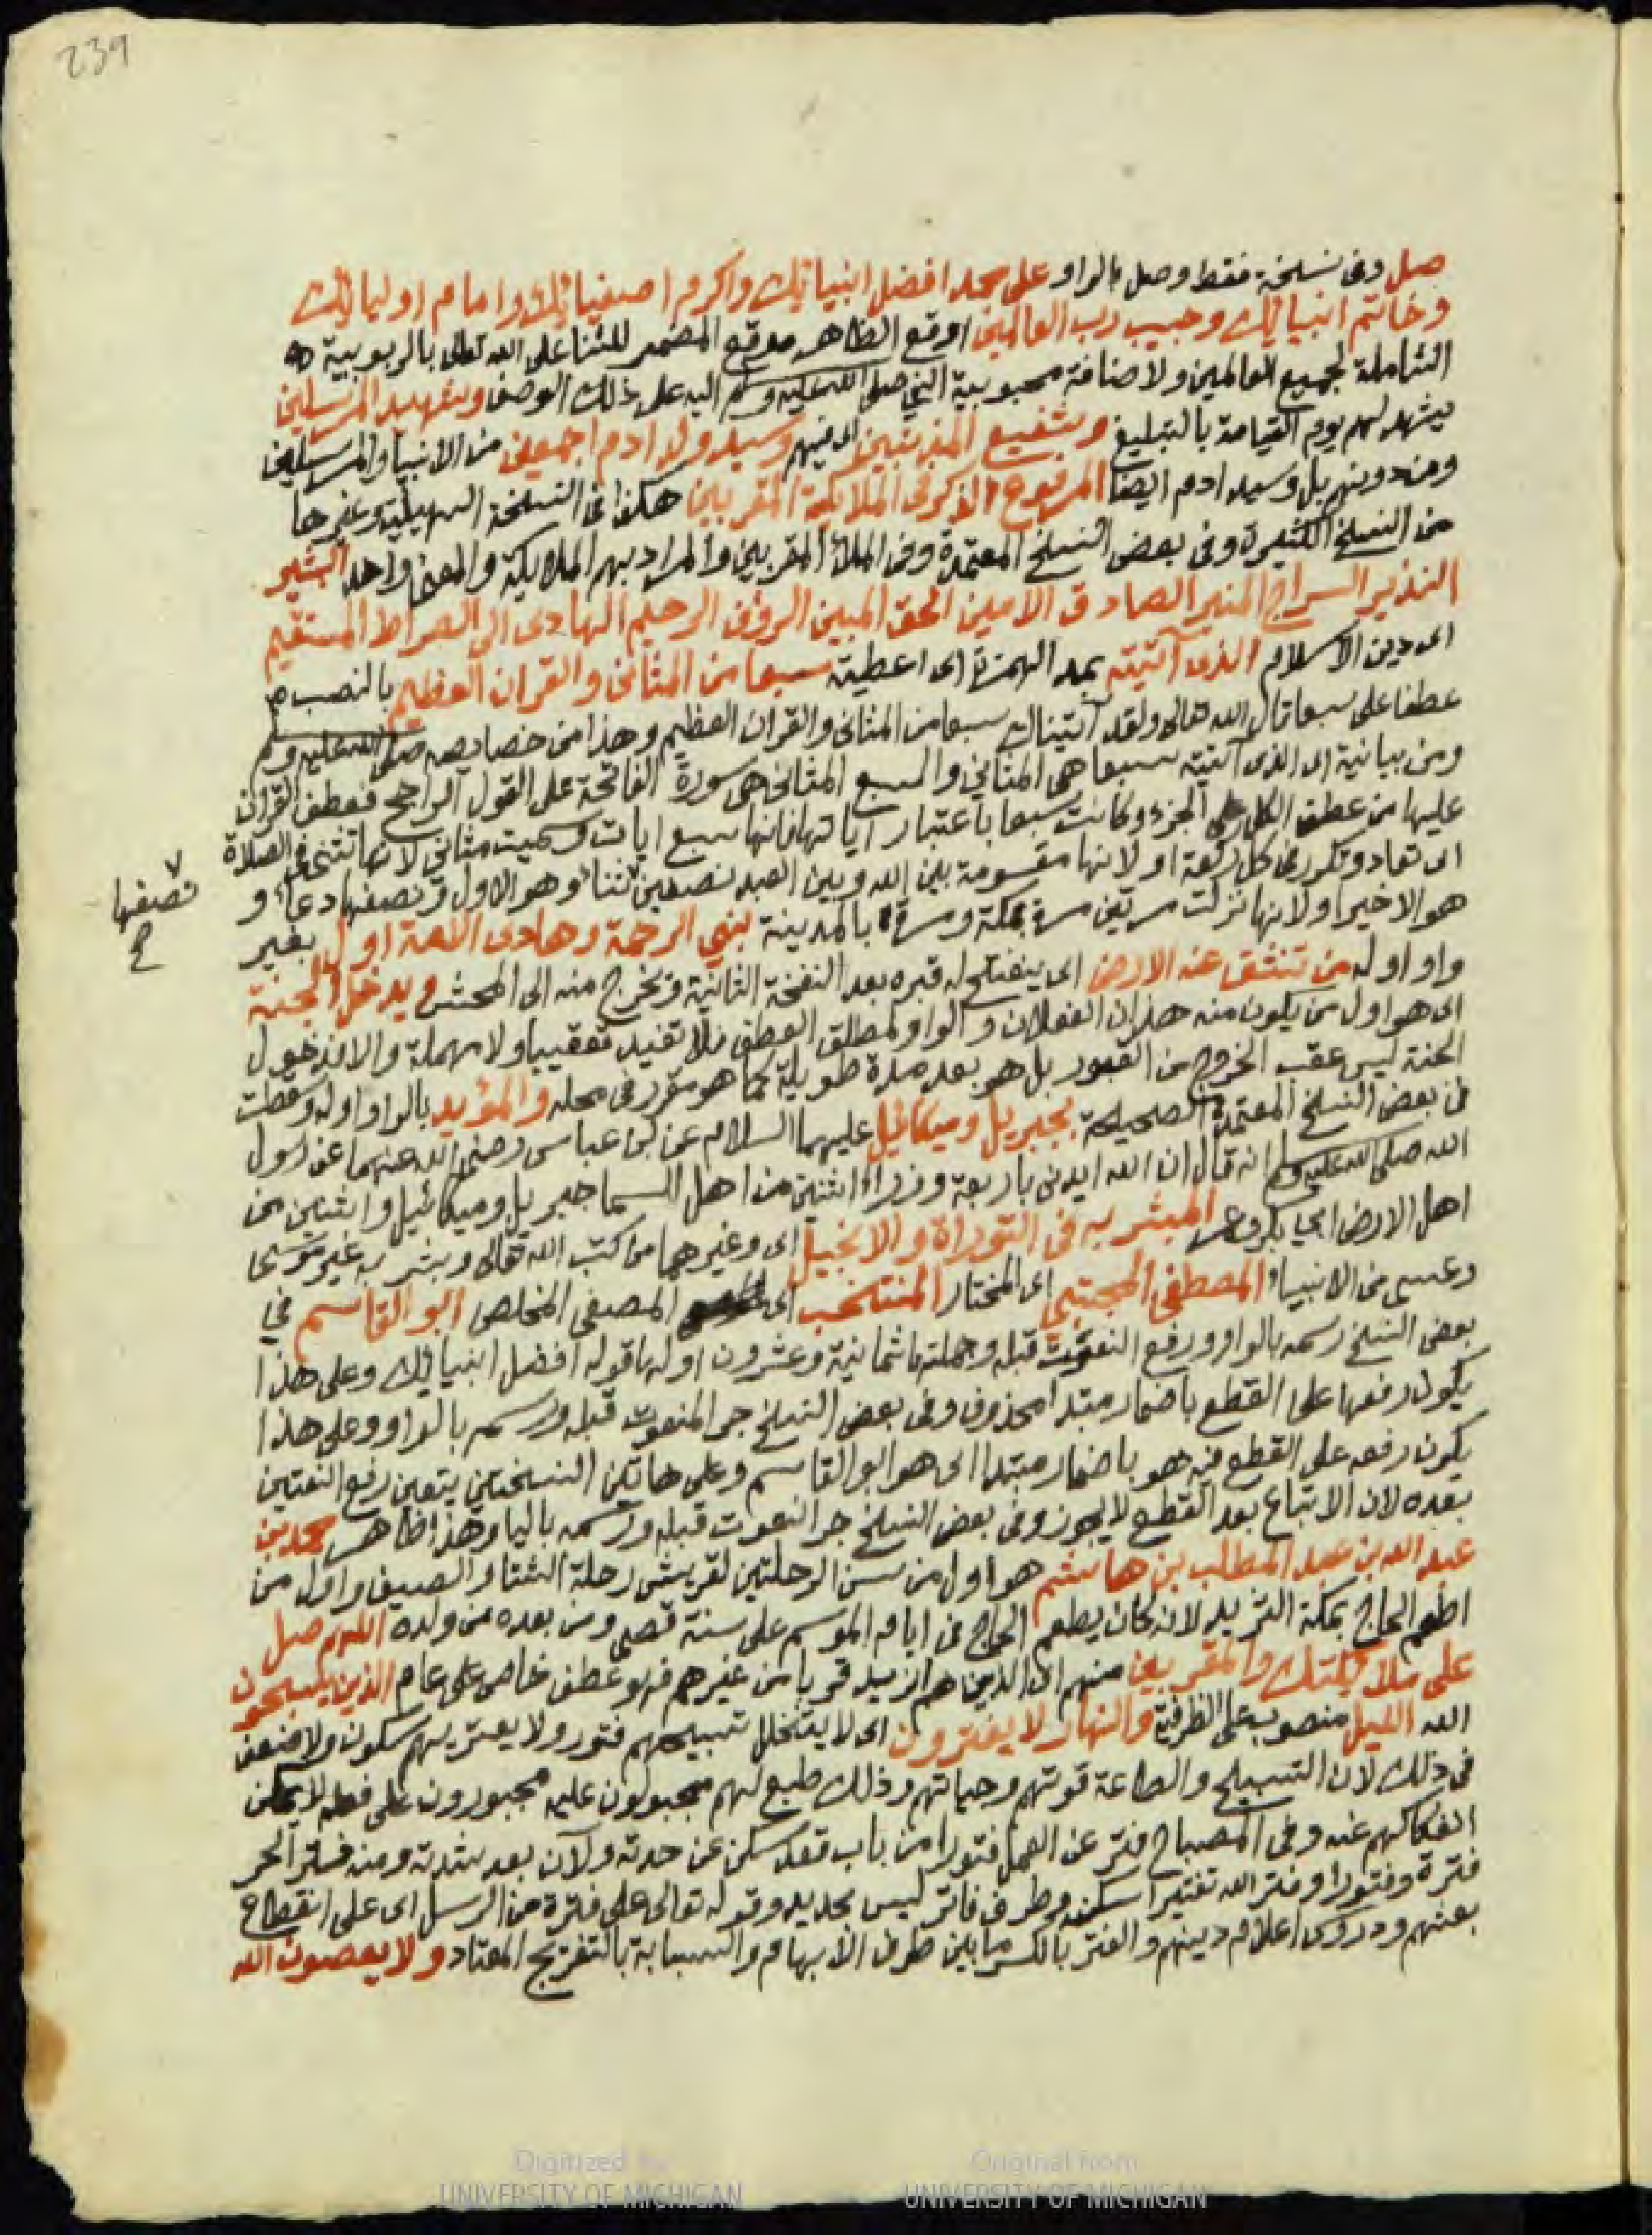 239
صل وفى نسخة فقط وصل بالواو على محمد افضل انبيائك واكرم اصفيائك وامام اوليائك
وخاتم انبيائك وحبيب رب العالمين اوقع الظاهر موقع المضمر للثنا على الله تعالى بالربوبية
الشاملة لجميع العالمين ولاضافة محبوبية النبي صلى الله عليه وسلم اليه على ذلك الوصف وشهيد المرسلين
يشهد لهم يوم القيامة بالتبليغ وشفيع المذنبين اى فيهم وسيد ولد ادم اجمعين من الانبيا والمرسلين
ومن دونهم بل وسيد ادم ايضا المرفوع الذكر فى الملائكة المقربين هكذا فى النسخة السهيلية وغيرها
من النسخ الكثيرة وفى بعض النسخ المعتمدة وفى الملأ المقربين والمراد بهم الملايكة والمعنى واحد البشير
النذير السراج المنير الصادق الامين الحق المبين الرؤف الرحيم الهادى الى الصراط المستقيم
اى دين الاسلام الذى آتيته بمد الهمزة اى اعطيته سبعا من المثانى والقران العظيم بالنصب
عطفا على سبعا قال الله تعالى ولقد آتيناك سبعا من المثانى والقران العظيم وهذا من خصايصه صلى الله عليه وسلم
ومن بيانية اى الذى آتيته سبعا هى المثاني والسبع المثانى هى سورة الفاتحة على القول الراجح فعطف القران
عليها من عطف الكل على الجزء وكانت سبعا باعتبار اياتها فانها سبع ايات وسميت مثانى لانها تثنى فى الصلاة
اى تعاد وتكرر فى كل ركعة او لانها مقسومة بين الله وبين العبد نصفين ثنا وهو الاول ونصفها دعا و
نصفها
صح
هو الاخير او لانها نزلت مرتين مرة بمكة ومرة بالمدينة نبي الرحمة وهادى الامة اول بغير
واو اوله من تنشق عنه الارض اى ينفتح له قبره بعد النفخة الثانية ويخرج منه الى المحشر ويدخل الجنة
اى هو اول من يكون منه هذان الفعلان والواو لمطلق العطف فلا تفيد تعقيبا ولا مهملة والا فدخول
الجنة ليس عقب الخروج من القبور بل هو بعد مدة طويلة كما هو مقرر فى محله والمؤيد بالواو اوله وسقطت
فى بعض النسخ المعتمدة الصحيحة بجبريل وميكائيل عليهما السلام عن ابن عباس رضى الله عنهما عن رسول
الله صلى الله عليه وسلم انه قال ان الله ايدنى باربعة وزراء اثنين من اهل السما جبريل وميكائيل واثنين من
اهل الارض ابى بكر وعمر المبشر به فى التوراة والانجيل اى وغيرهما من كتب الله تعالى وبشر به غير موسى
وعيسى من الانبيا المصطفى المجتبى اى المختار المنتخب اى المصفى المخلص ابو القاسم في
بعض النسخ رسمه بالواو ورفع النعوت قبله وجملتها ثمانية وعشرون اولها قوله افضل انبيائك وعلى هذا
يكون رفعها على القطع باضمار مبتدا محذوف وفى بعض النسخ جر المنعوت قبله ورسمه بالواو وعلى هذا
يكون رفعه على القطع فيه هو باضمار مبتدا اى هو ابو القاسم وعلى هاتين النسختين يتعين رفع النعتين
بعده لان الاتباع بعد القطع لا يجوز وفى بعض النسخ جر النعوت قبله ورسمه باليا وهذا ظاهر محمد بن
عبد الله بن عبد المطلب بن هاشم هو اول من سن الرحلتين لقريش رحلة الشتا والصيف واول من
اطعم الحاج بمكة الثريد لانه كان يطعم الحاج فى ايام الموسم على سنة قصى ومن بعده من ولده اللهم صل
على ملائكتك والمقربين منهم اى الذين هم ازيد قربا من غيرهم فهو عطف خاص على عام الذين يسبحون
الله الليل منصوب على الظرفية والنهار لا يفترون اى لا يتخلل تسبيحهم فتور ولا يعتريهم سكون ولا ضعف
فى ذلك لان التسبيح والطاعة قوتهم وحياتهم وذلك طبع لهم مجبولون عليه مجبورون على فعله لا يمكن
انفكاكهم عنه وفى المصباح فتر عن العمل فتورا من باب قعد سكن عن حدته ولان بعد شدته ومنه فتر الحر
فترة وفتورا وفتر الله تفتيرا اسكنه وطرف فاتر ليس بحديد وقوله تعالى على فترة من الرسل اى على انقطاع
بعثهم ودروس اعلام دينهم والفتر بالكسر ما بين طرف الابهام والسبابة بالتفريج المعتاد ولا يعصون الله
Digitized by
UNIVERSITY OF MICHIGAN
Original from
UNIVERSITY OF MICHIGAN